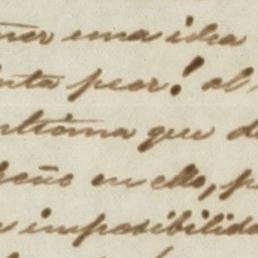 ner una idea
nta peor! al
ntóma que d
en ello, p
imposibilid